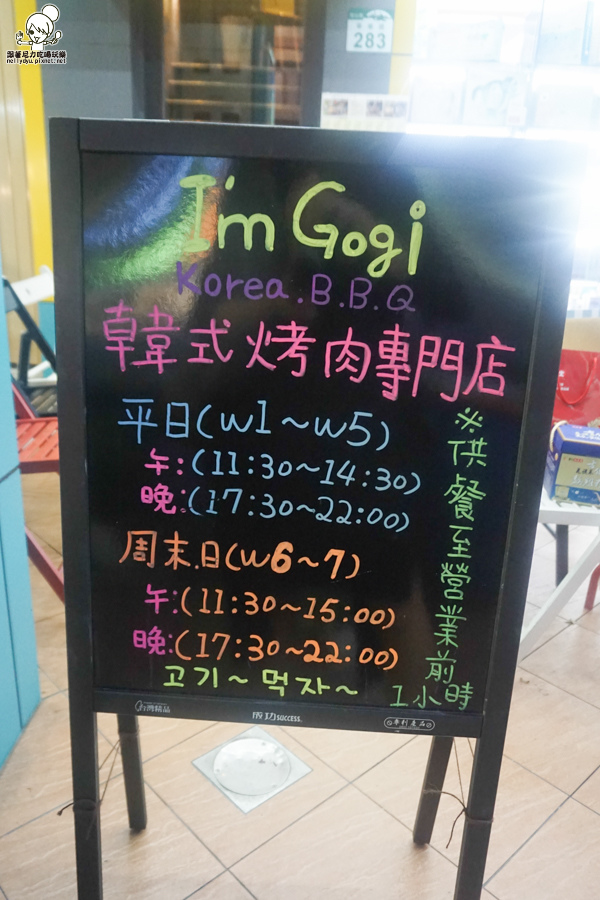 跟著尼力吃喝玩樂
nellydyu.pixnet.net
283
I'm Gogi
Korea.B.B.Q
韓式烤肉專門店
平日(W1~W5)
午:(11:30~14:30)
晚:(17:30~22:00)
周末.日(W6~7)
午:(11:30~15:00)
晚:(17:30~22:00)
고기~먹자~
※供餐至營業前
1小時
台灣精品
成功 SUCCESS.
專利產品